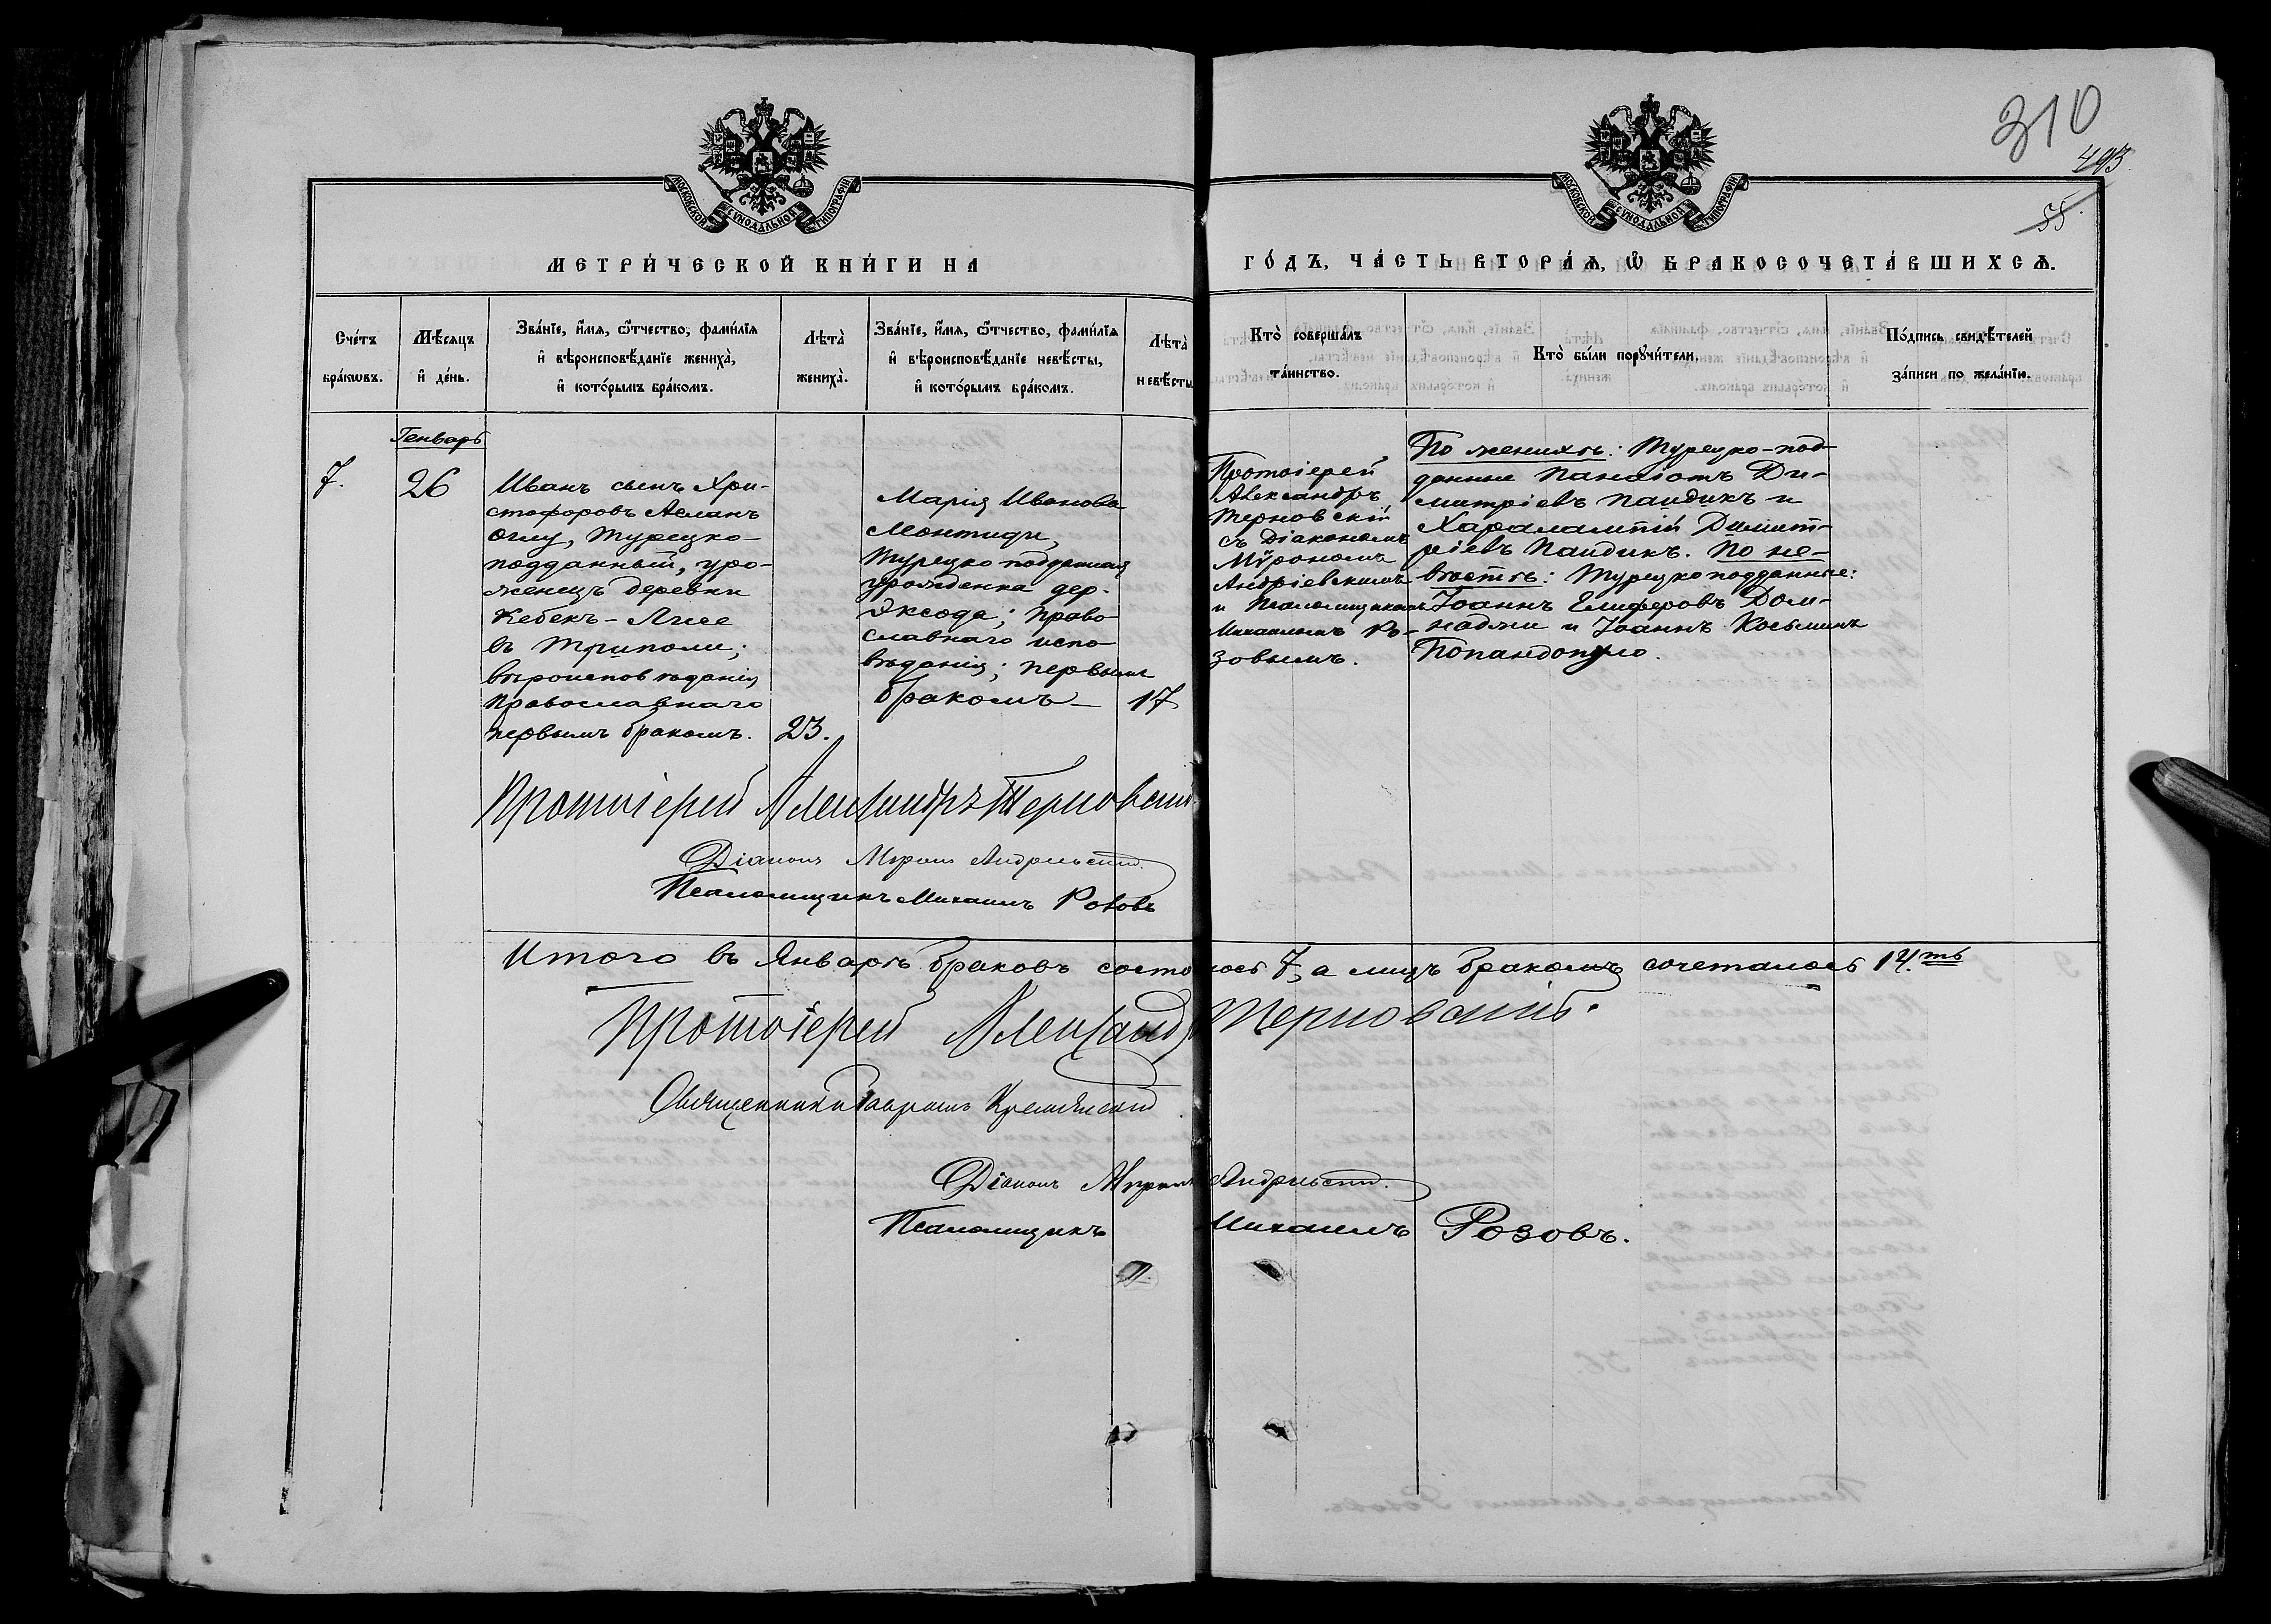 310
493.
55.
МОСКОВСКОЙ СУНОДАЛЬНОЙ ТИПОГРАФІИ
МОСКОВСКОЙ СУНОДАЛЬНОЙ ТИПОГРАФІИ
МЕТРИ́ЧЕСКОЙ КНИ́ГИ НА
ГО́ДЪ, ЧА́СТЬ ВТОРА́Ѧ, Ѿ БРАКОСОЧЕТА́ВШИХСѦ.
Сче́тъ
бра́кѡвъ.
Мѣ́сѧцъ
и҆ де́нь.
Зва́нїе, и҆́мѧ, ѻ҆́тчество, фами́лїѧ
и҆ вѣроисповѣ́данїе жениха̀,
и҆ кото́рымъ бра́комъ.
Лѣ́та̀
жениха̀.
Зва́нїе, и҆́мѧ, ѻ҆́тчество, фами́лїѧ
и҆ вѣроисповѣ́данїе невѣ́сты,
и҆ кото́рымъ бра́комъ.
Лѣ́та̀
невѣ́сты
Кто̀ соверша́лъ
та́инство.
Кто̀ бы́ли порꙋчи́тели.
По́дпись свидѣ́телей
за́писи по жела́нїю.
Генварь
7.
26
Иванъ сынъ Хри-
стофоровъ Асланъ
Оглу, Турецко-
подданный, уро-
женецъ деревни
Кебекъ-Лисе
въ Триполи;
вѣроисповѣданія
православнаго
первымъ бракомъ.
23.
Марія Иванова
Монтиди,
Турецко подданная
урожденка дер.
Эксода; право-
славнаго испо-
вѣданія; первымъ
бракомъ—
17
Протоіерей
Александръ
Терновскій
съ Діакономъ
Мѵрономъ
Андріевскимъ
и Псаломщикомъ
Михаиломъ Ро-
зовымъ.
По женихѣ: Турецко-под-
данные Панаіотъ Ди-
митріевъ Паидикъ и
Харалампій Димит-
ріевъ Паидикъ. По не-
вѣстѣ: Турецкоподданные:
Іоаннъ Елиферовъ Дом-
наджи и Іоаннъ Косьминъ
Попандопуло.
Протоіерей Александръ Терновскій
Діаконъ Мѵронъ Андріевскій
Псаломщикъ Михаилъ Розовъ
Итого въ Январѣ браковъ состоялось 7, а лицъ бракомъ сочеталось 14.ть
Протоіерей Александръ Терновскій.
Священникъ Гавріилъ Кремянскій
Діаконъ Мѵронъ Андріевскій.
Псаломщикъ Михаилъ Розовъ.